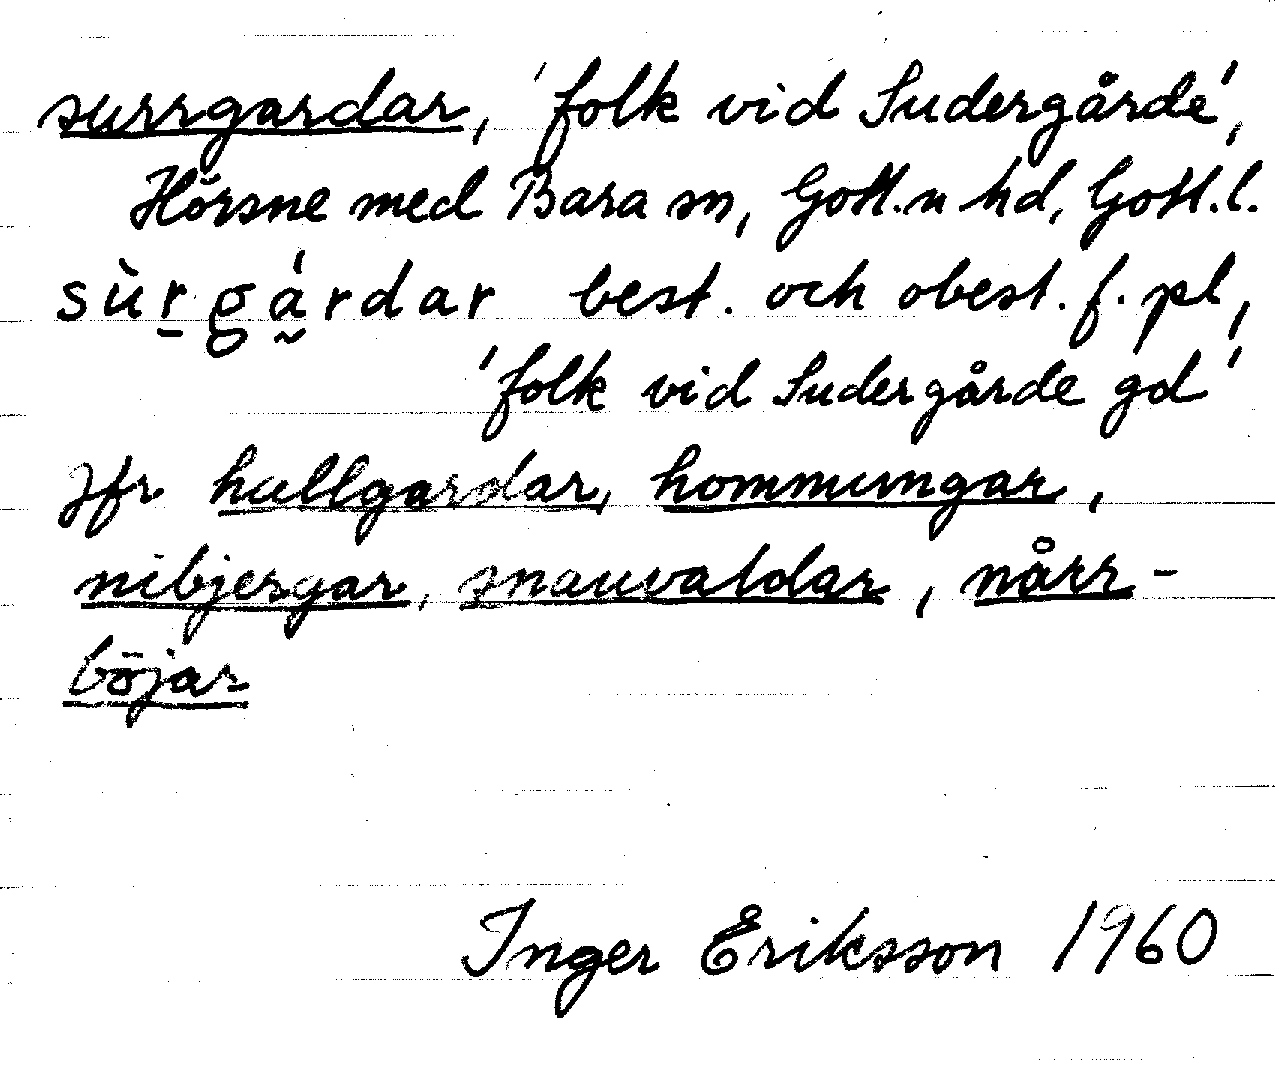 surrgardar, 'folk vid Sudergårde',
Hörsne med Bara sn, Gotl.n hd, Gotl.l.
sùr̠gá̰rdar best. och obest. f. pl,
'folk vid Sudergårde gd'
Jfr hullgardar, hommungar,
nibjergar, snauvaldar, nårr-
böjar
Inger Eriksson 1960